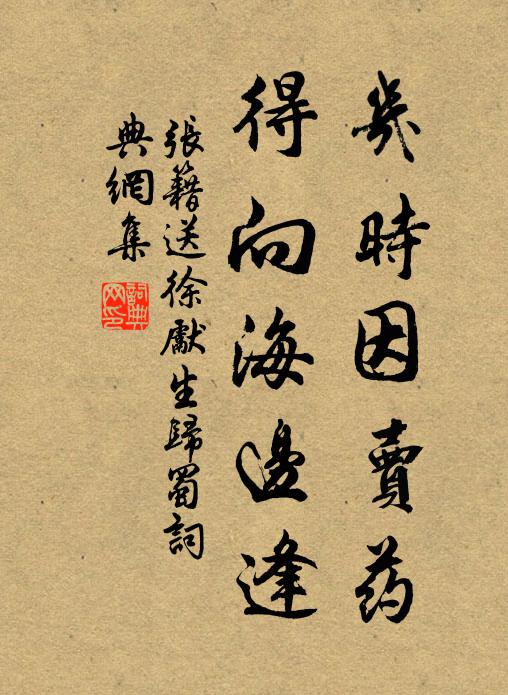 幾時因賣药
得向海邊逢
張籍送徐獻生歸蜀詞
典網集
詞典網印